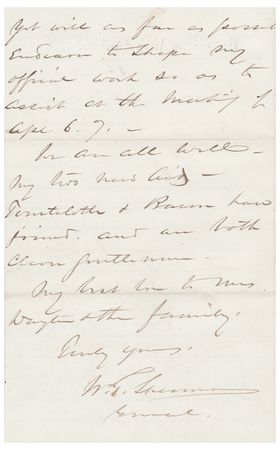 Yet will as far as possible
Endeavor to shape my
official work so as to
assist at the Meeting of
Apl 6-7. -
We are all well -
My two new Aids -
& Bacon have
joined, and are both
clever gentlemen -
My best love to Mrs
Dayton & the family.
Truly yours,
W. T. Sherman
General.